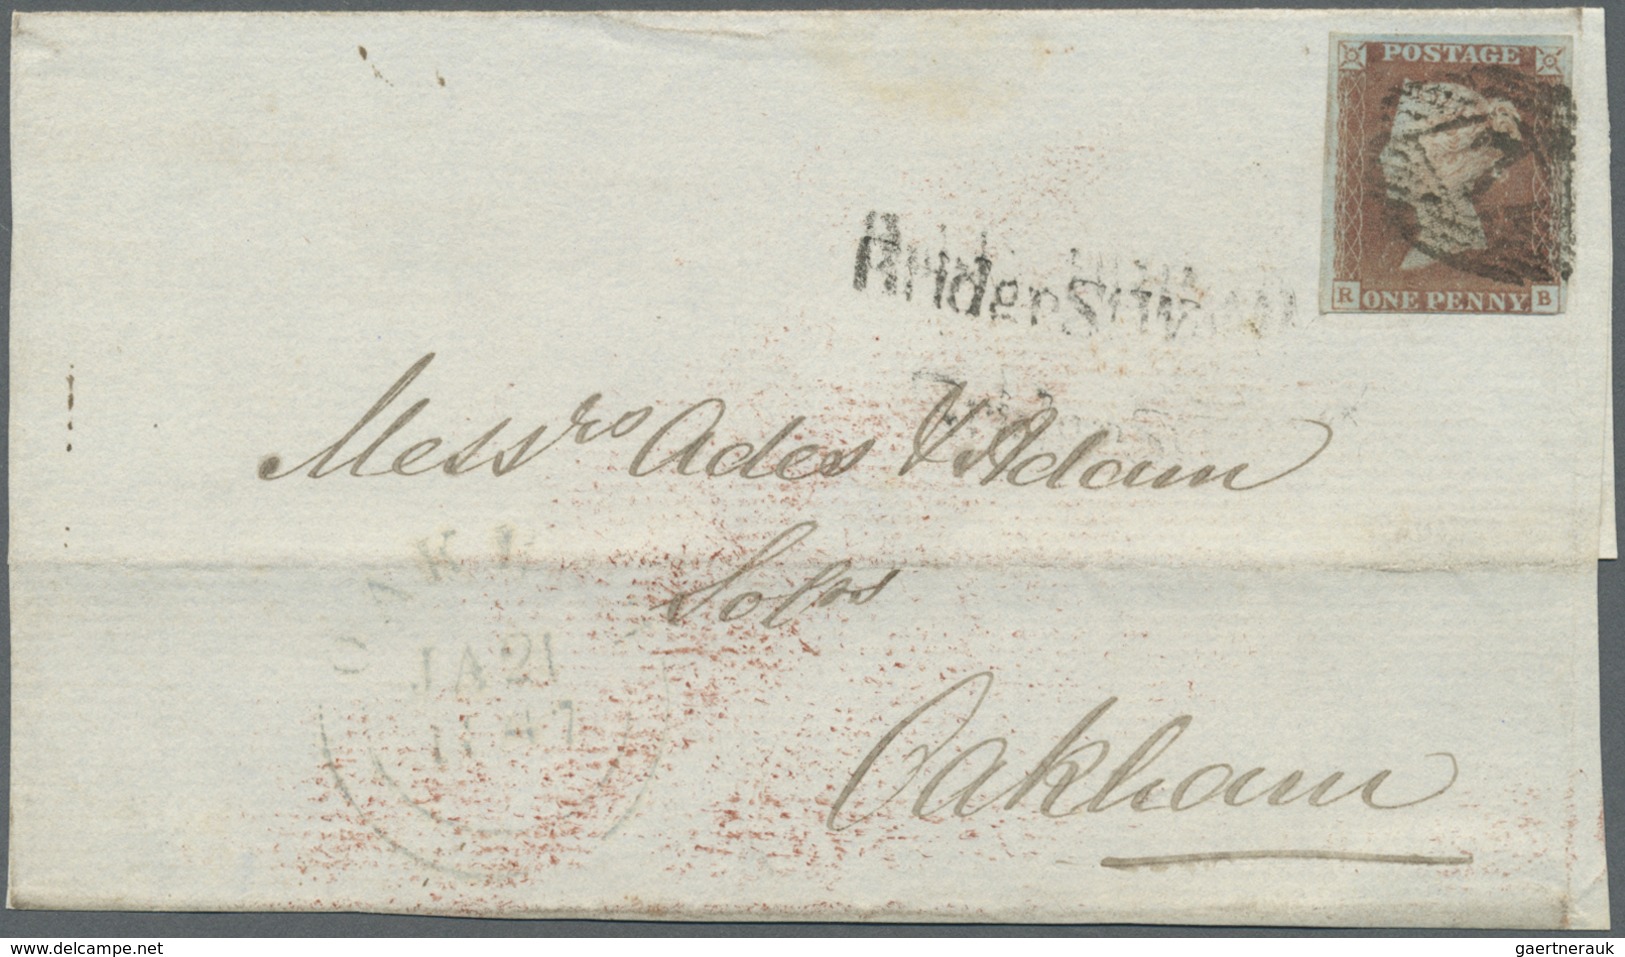 POSTAGE
R ONE PENNY B
Messrs Ades & Adam
Solrs
Oakham
JA 21
1847
www.delcampe.net
gaertnerauk